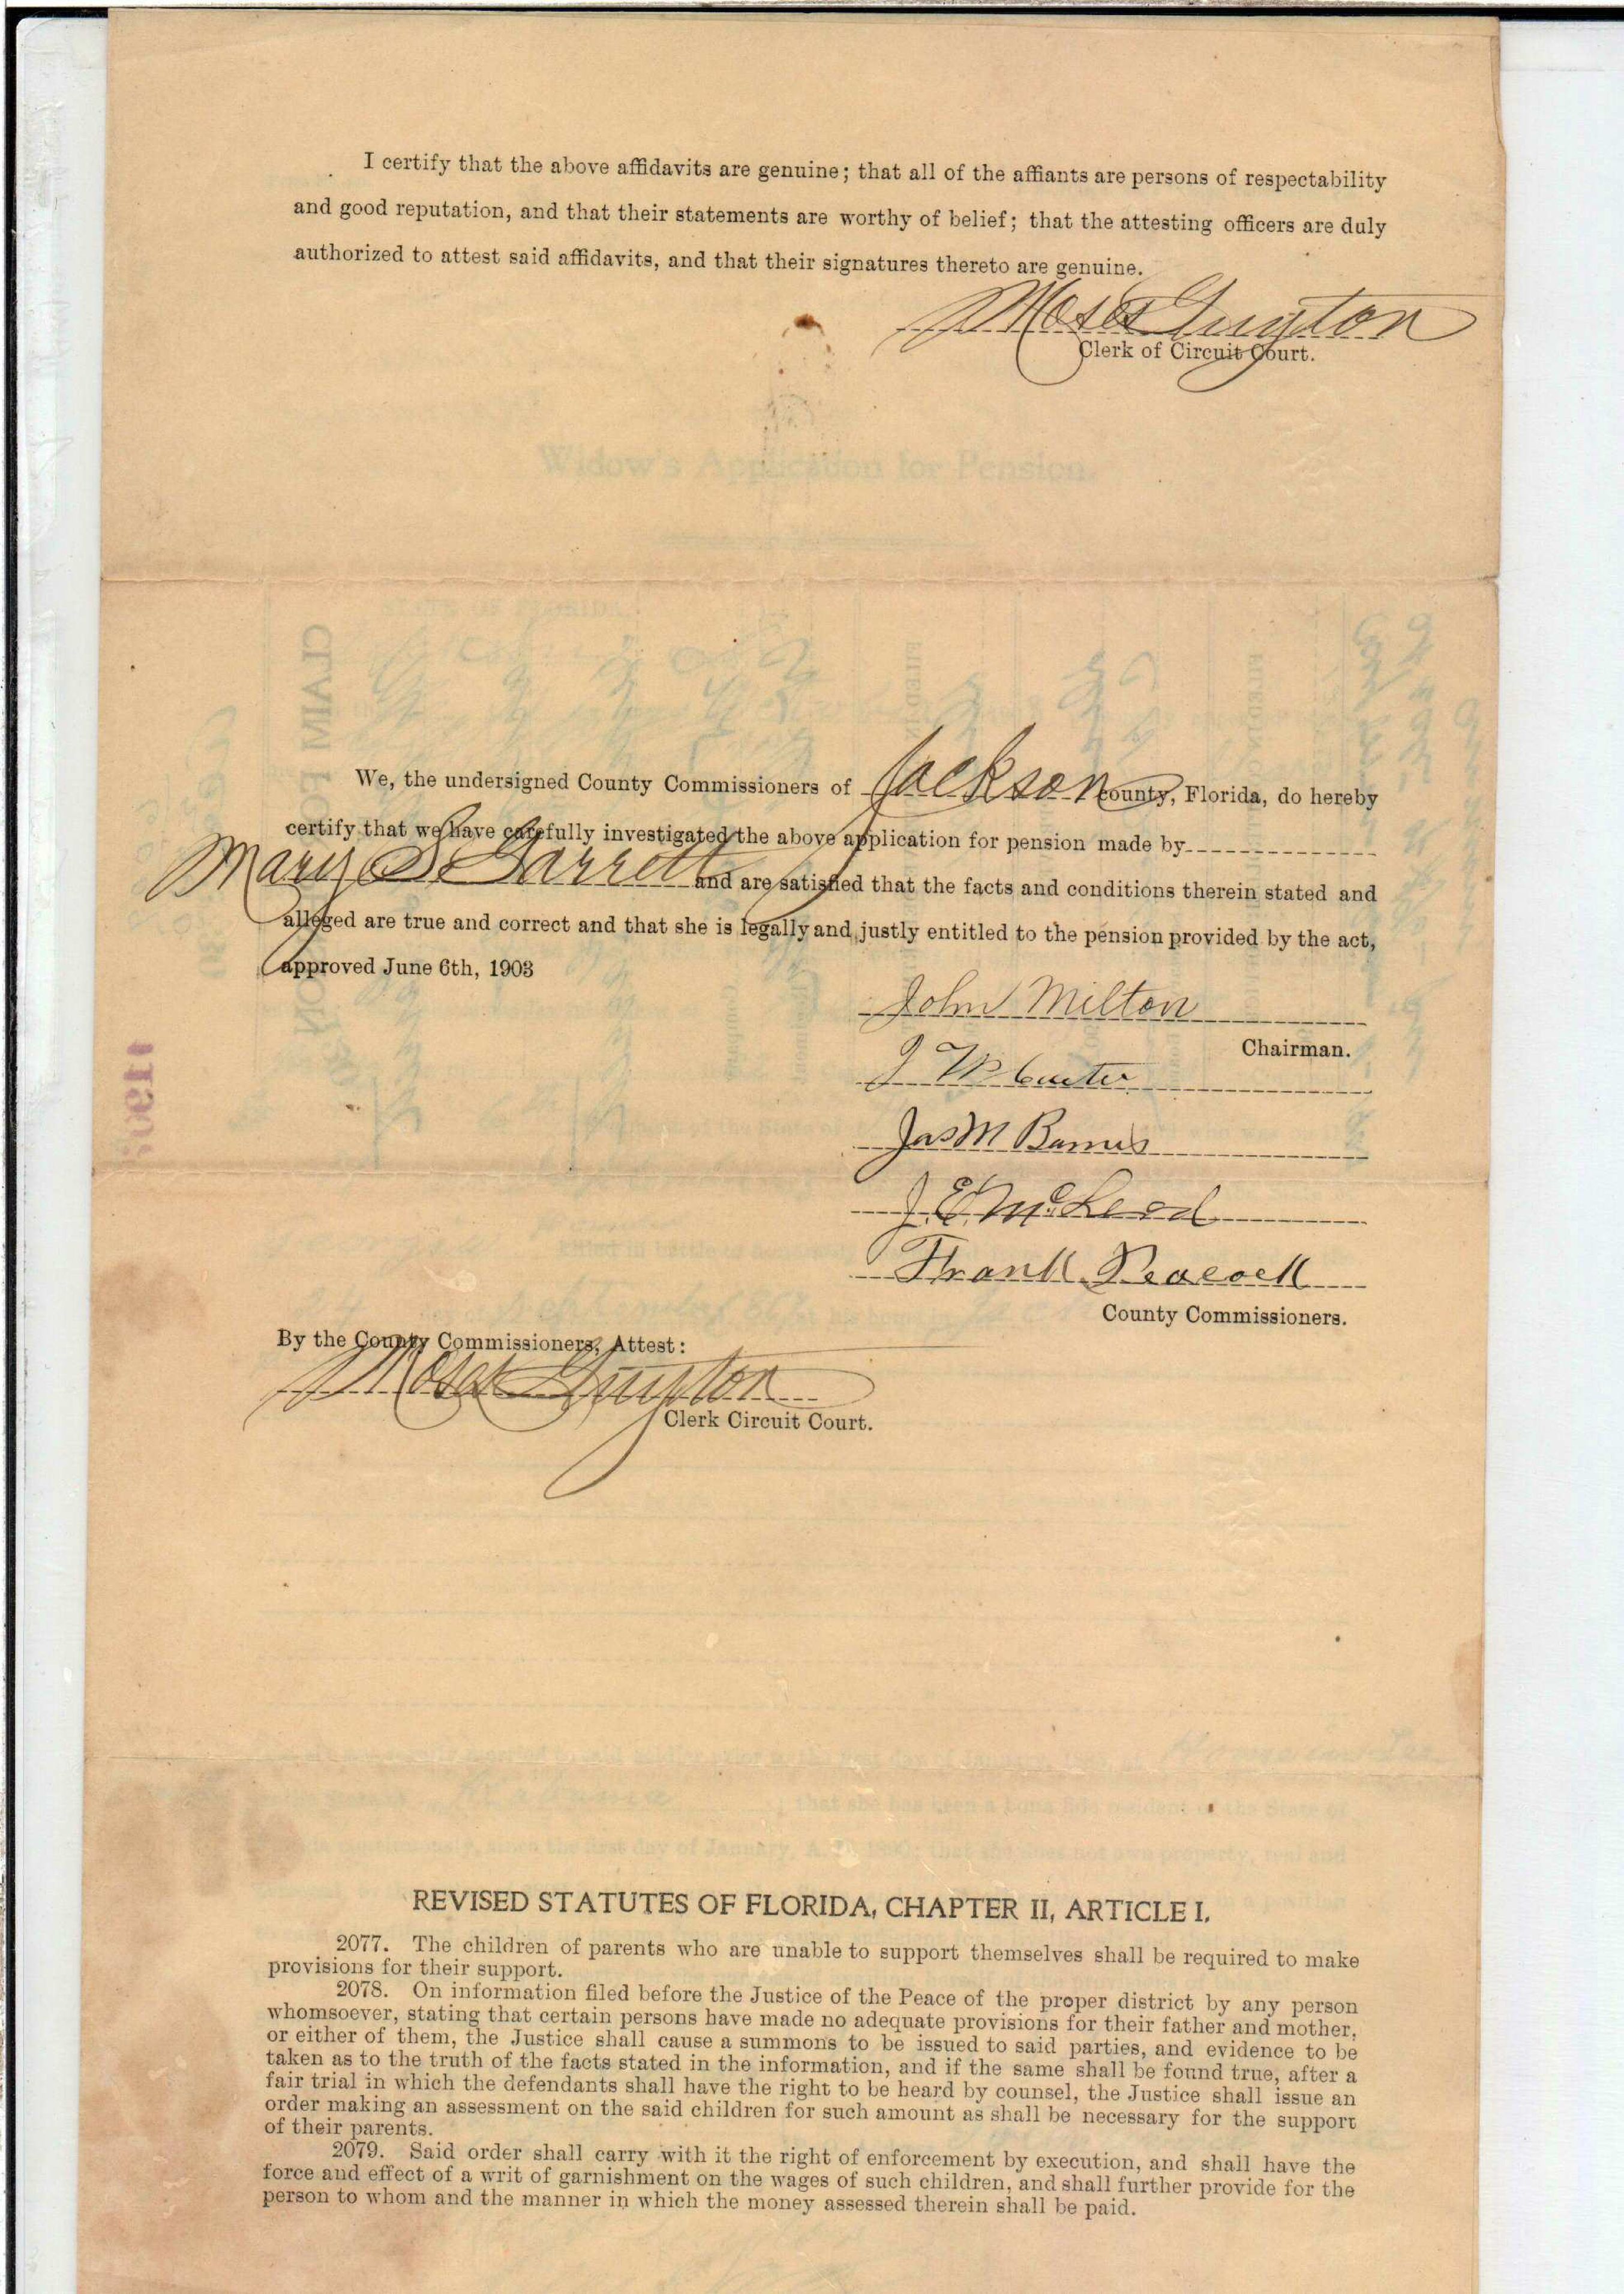 I certify that the above affidavits are genuine; that all of the affiants are persons of respectability
and good reputation, and that their statements are worthy of belief; that the attesting officers are duly
authorized to attest said affidavits, and that their signatures thereto are genuine.
Moses Guyton
Clerk of Circuit Court.
Widow's Application for Pension.
STATE OF FLORIDA
CLAIM FOR
We, the undersigned County Commissioners of Jackson county, Florida, do hereby
certify that we have carefully investigated the above application for pension made by
Mary S. Garrett and are satisfied that the facts and conditions therein stated and
alleged are true and correct and that she is legally and justly entitled to the pension provided by the act,
approved June 6th, 1903
John Milton
Chairman.
J W
Jas M Barnes
J. E. McLeod
Frank Peacock
County Commissioners.
By the County Commissioners, Attest:
Moses Guyton
Clerk Circuit Court.
that she has been a bona fide resident of the State of
continuously, since the first day of January, A. D. that she does not own property, real and
REVISED STATUTES OF FLORIDA, CHAPTER II, ARTICLE I.
2077. The children of parents who are unable to support themselves shall be required to make
provisions for their support.
2078. On information filed before the Justice of the Peace of the proper district by any person
whomsoever, stating that certain persons have made no adequate provisions for their father and mother,
or either of them, the Justice shall cause a summons to be issued to said parties, and evidence to be
taken as to the truth of the facts stated in the information, and if the same shall be found true, after a
fair trial in which the defendants shall have the right to be heard by counsel, the Justice shall issue an
order making an assessment on the said children for such amount as shall be necessary for the support
of their parents.
2079. Said order shall carry with it the right of enforcement by execution, and shall have the
force and effect of a writ of garnishment on the wages of such children, and shall further provide for the
person to whom and the manner in which the money assessed therein shall be paid.